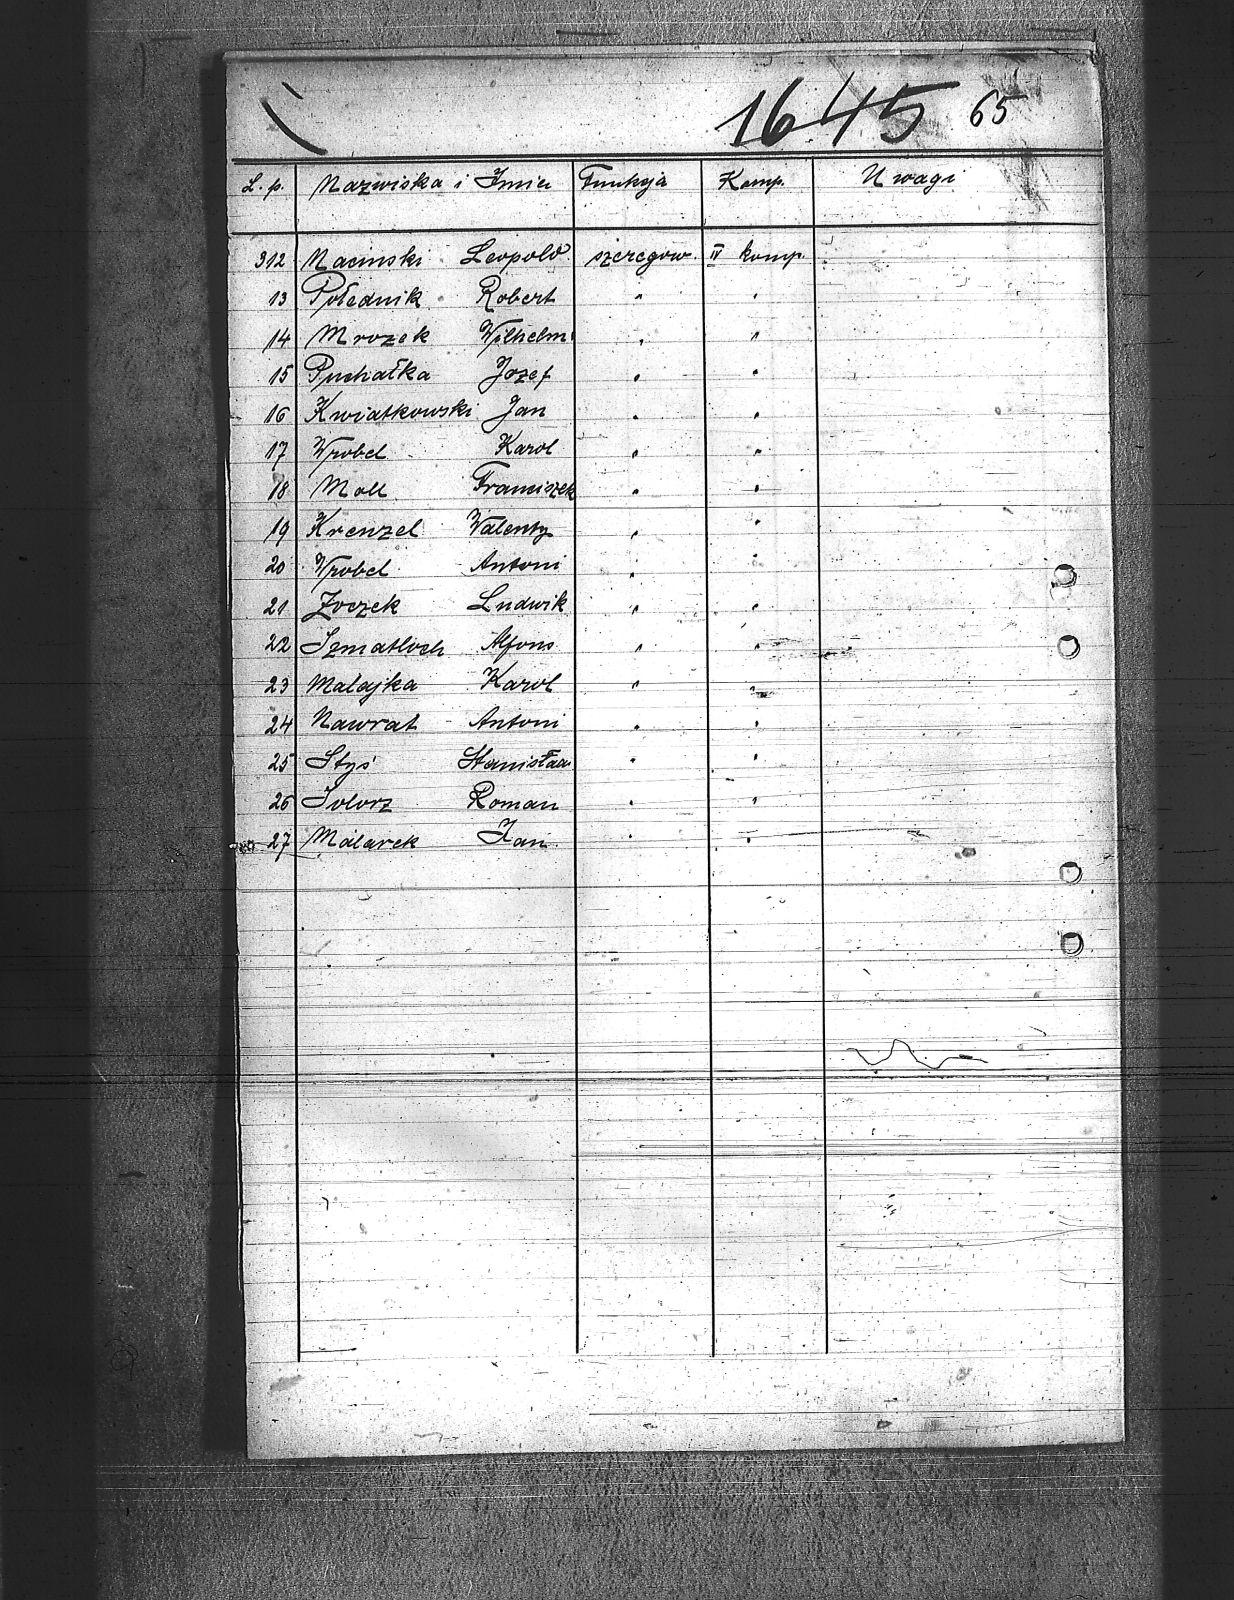 1645 65
L. p. Nazwiska i Imia Funkcja Komp. Uwagi
312 Macinski Leopold szeregow. IV komp.
13 Połednik Robert " "
14 Mrozek Wilhelm " "
15 Puchałka Jozef " "
16 Kwiatkowski Jan " "
17 Wrobel Karol " "
18 Moll Franciszek " "
19 Krenzel Walenty " "
20 Wrobel Antoni " "
21 Zoczek Ludwik " "
22 Szmatloch Alfons " "
23 Matajka Karol " "
24 Nawrat Antoni " "
25 Styś Stanisław " "
26 Solorz Roman " "
27 Malarek Jan " "